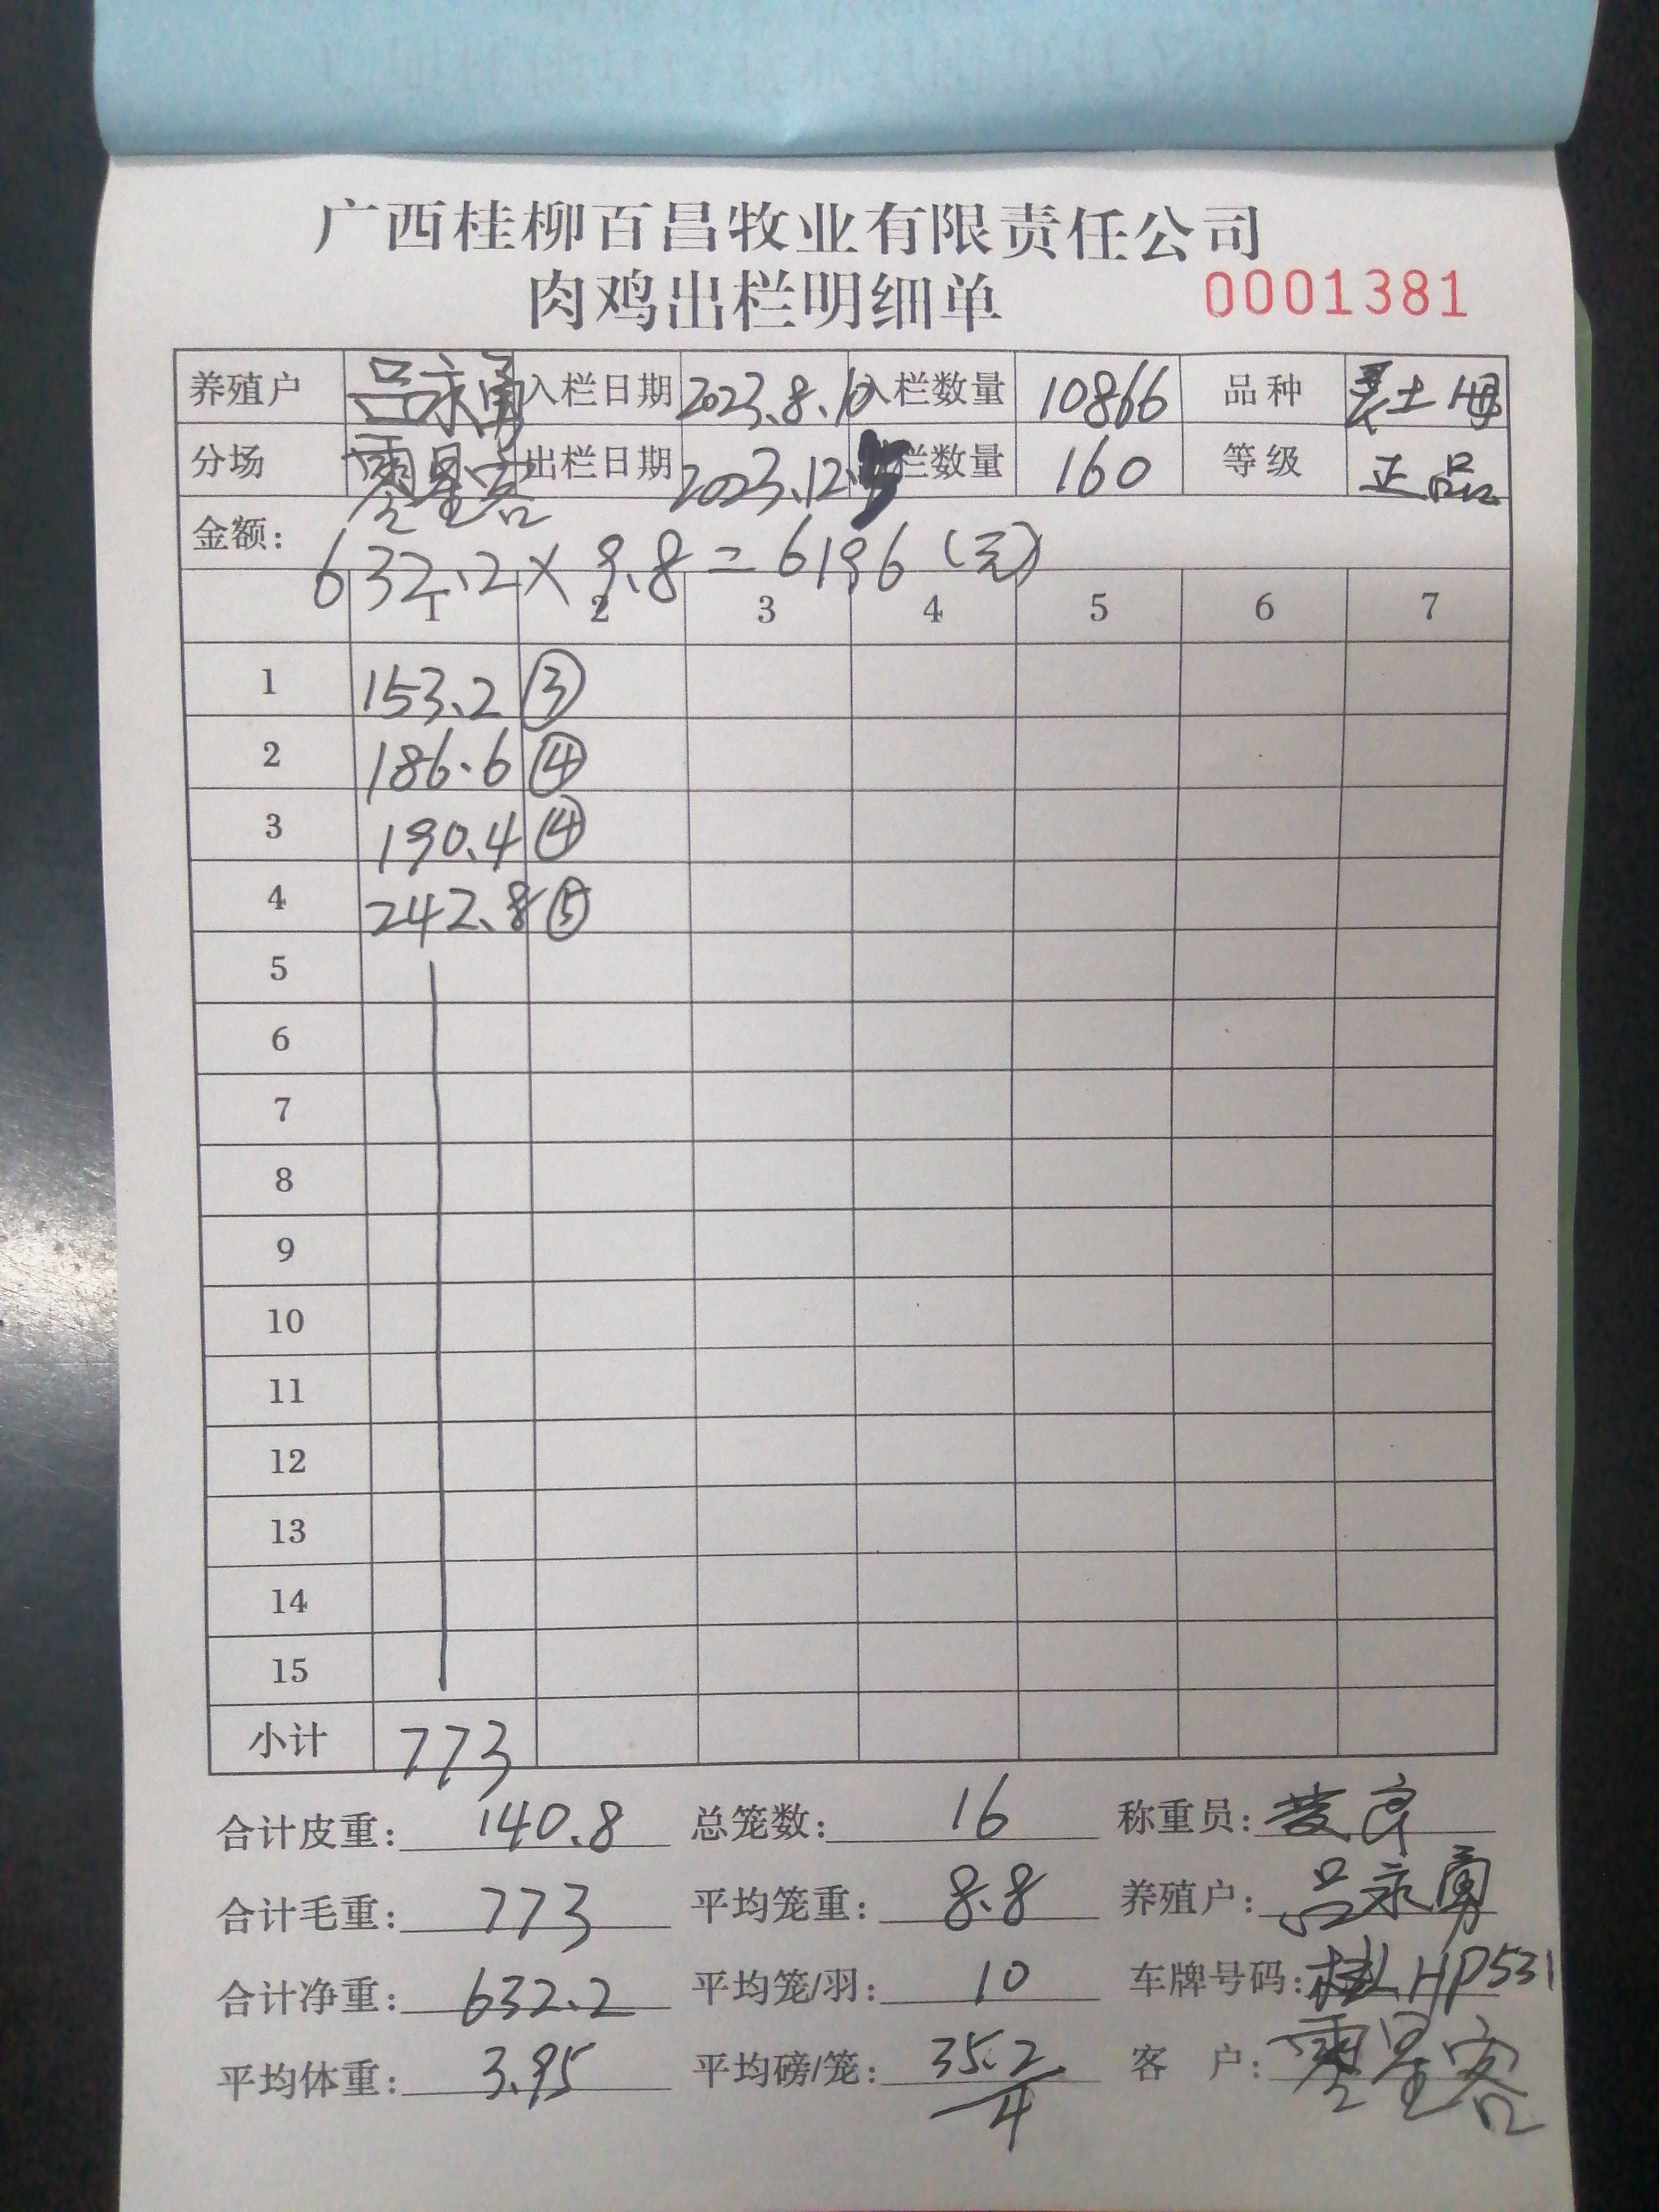 广西桂柳百昌牧业有限责任公司
肉鸡出栏明细单 0001381
养殖户 吕永勇 入栏日期 2023.8.10 入栏数量 10866 品种 土母
分场 零星客 出栏日期 2023.12. 栏数量 160 等级 正品
金额: 632.2×9.8=6196(元)
1 2 3 4 5 6 7
1 153.2 ③
2 186.6 ④
3 190.4 ④
4 242.8 ⑤
5
6
7
8
9
10
11
12
13
14
15
小计 773
合计皮重: 140.8 总笼数: 16 称重员:
合计毛重: 773 平均笼重: 8.8 养殖户: 吕永勇
合计净重: 632.2 平均笼/羽: 10 车牌号码: HP531
平均体重: 3.95 平均磅/笼: 35.2/4 客户: 零星客